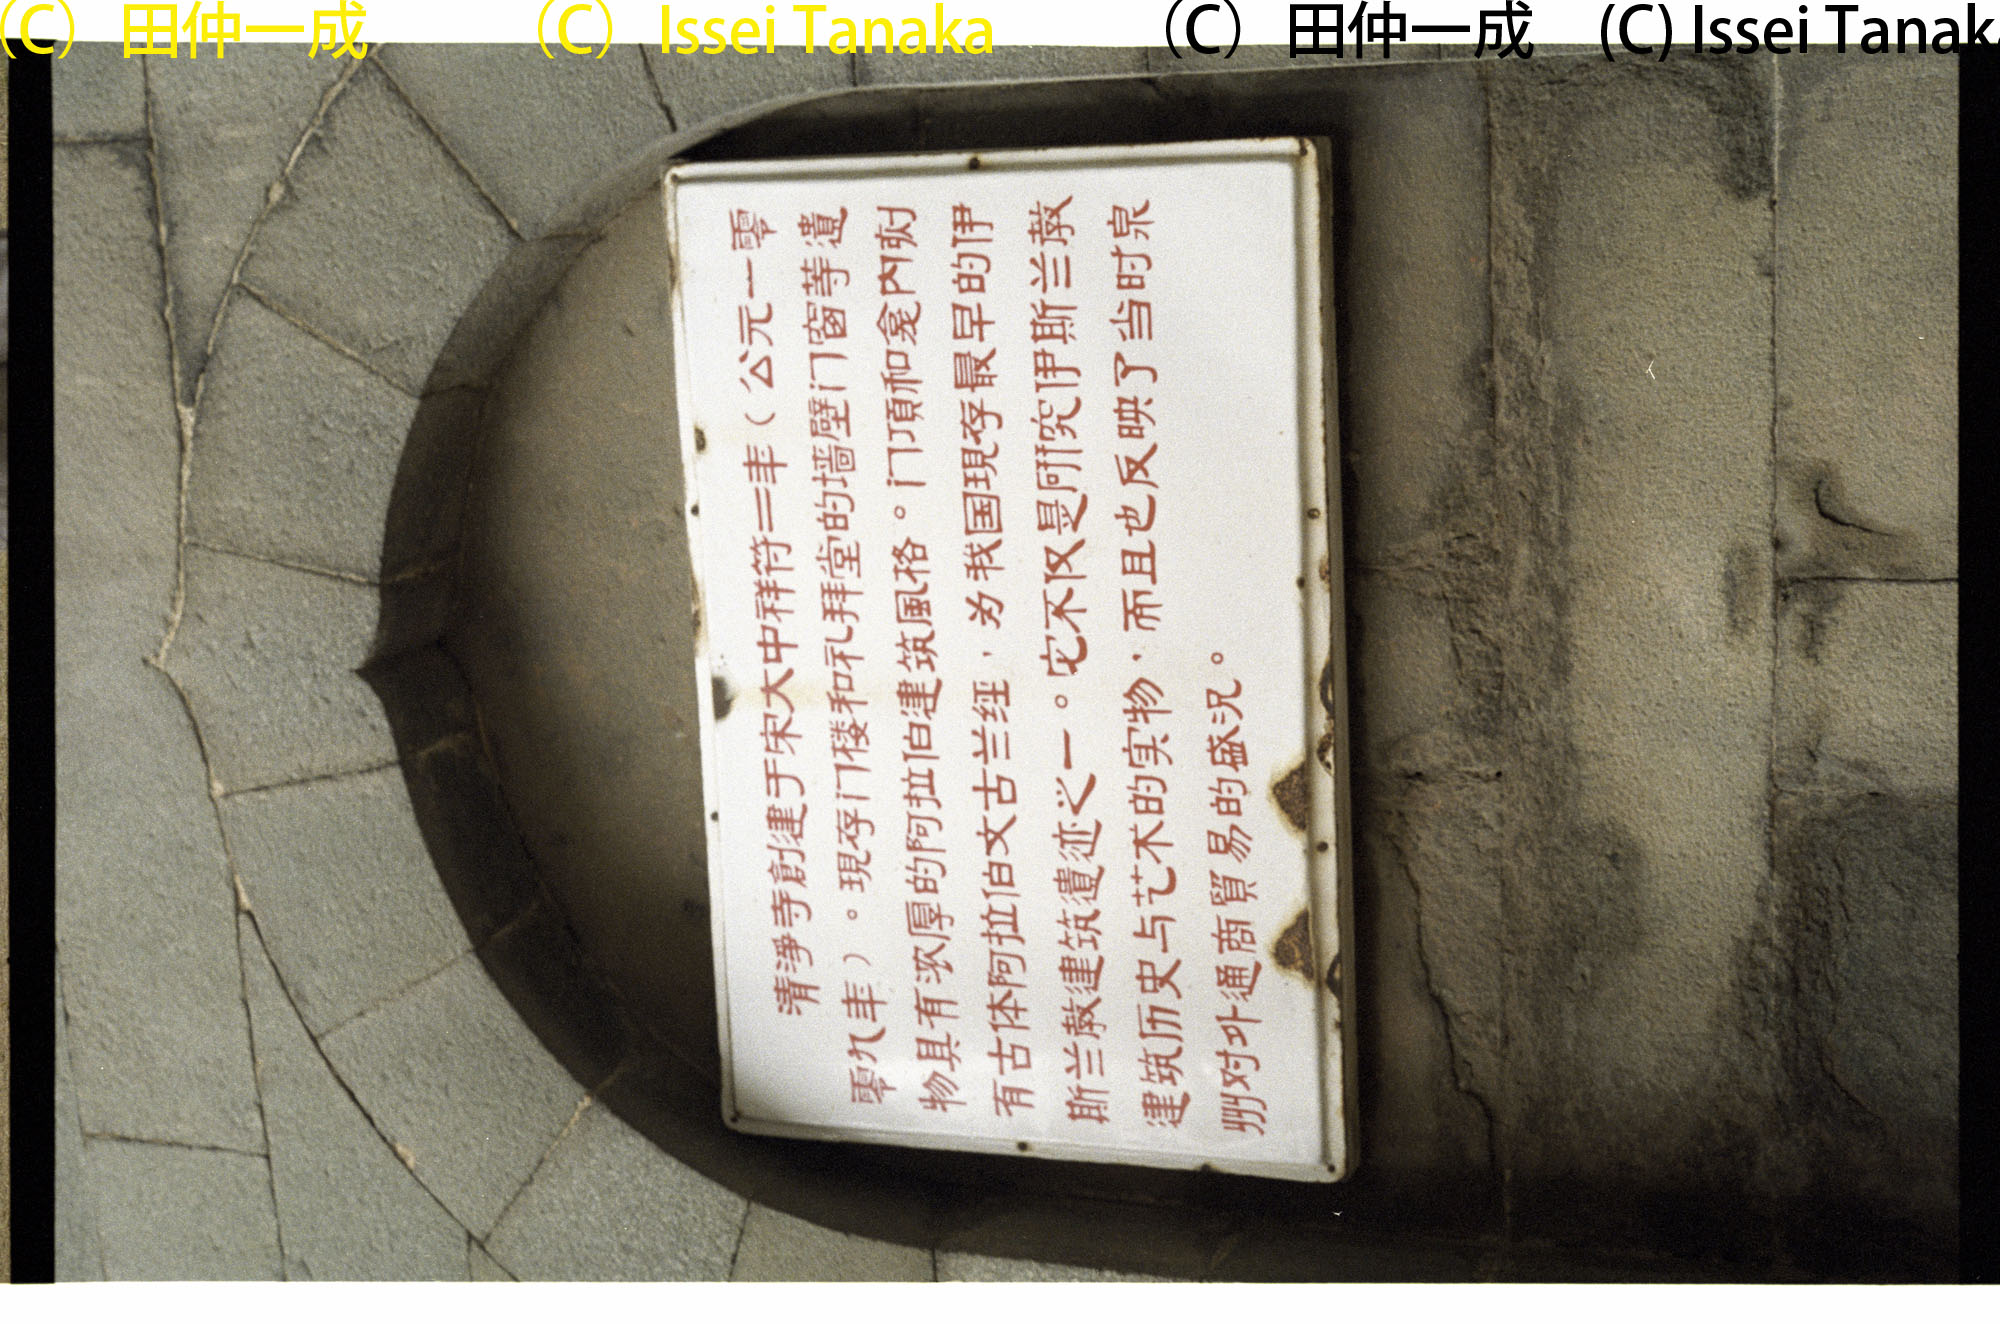 (C) 田仲一成 (C) Issei Tanaka (C) 田仲一成 (C) Issei Tanaka
清淨寺創建于宋大中祥符二年（公元一零
零九年）。現存门楼和礼拜堂的墙壁门窗等遺
物具有浓厚的阿拉伯建筑風格。门頂和龛内刻
有古体阿拉伯文古兰经，为我国現存最早的伊
斯兰教建筑遺迹之一。它不仅是研究伊斯兰教
建筑历史与艺术的实物，而且也反映了当时泉
州对外通商貿易的盛况。